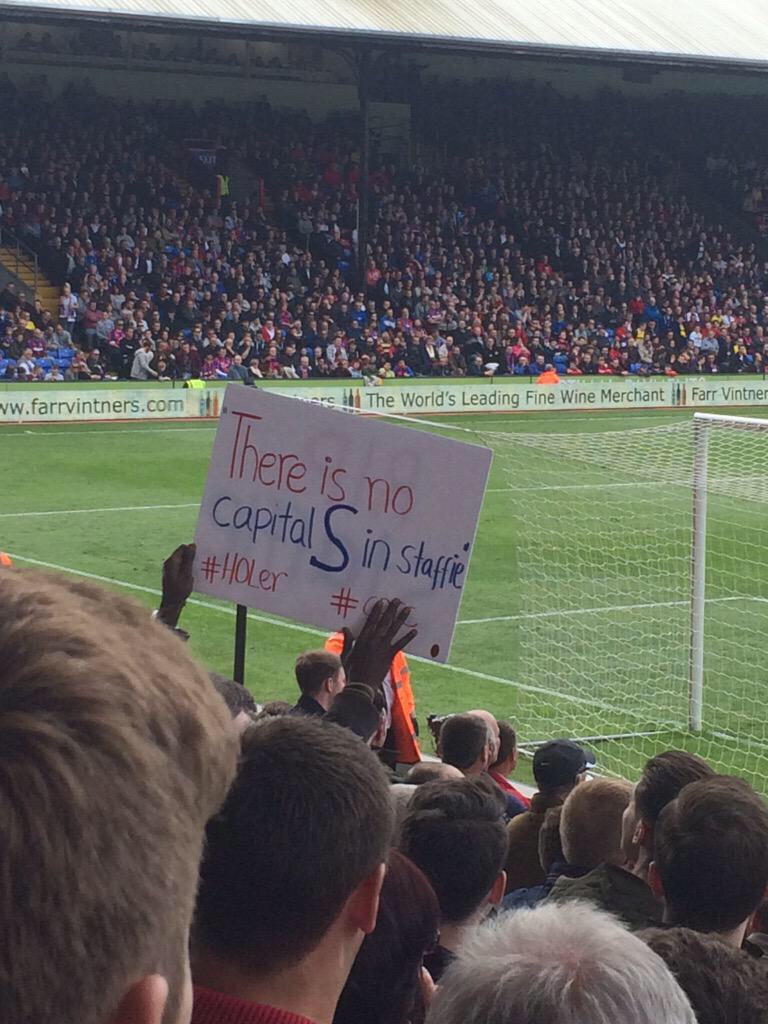 www.farrvintners.com
The World's Leading Fine Wine Merchant
Farr Vintner
There is no
capital S in staffie
#HOLer #